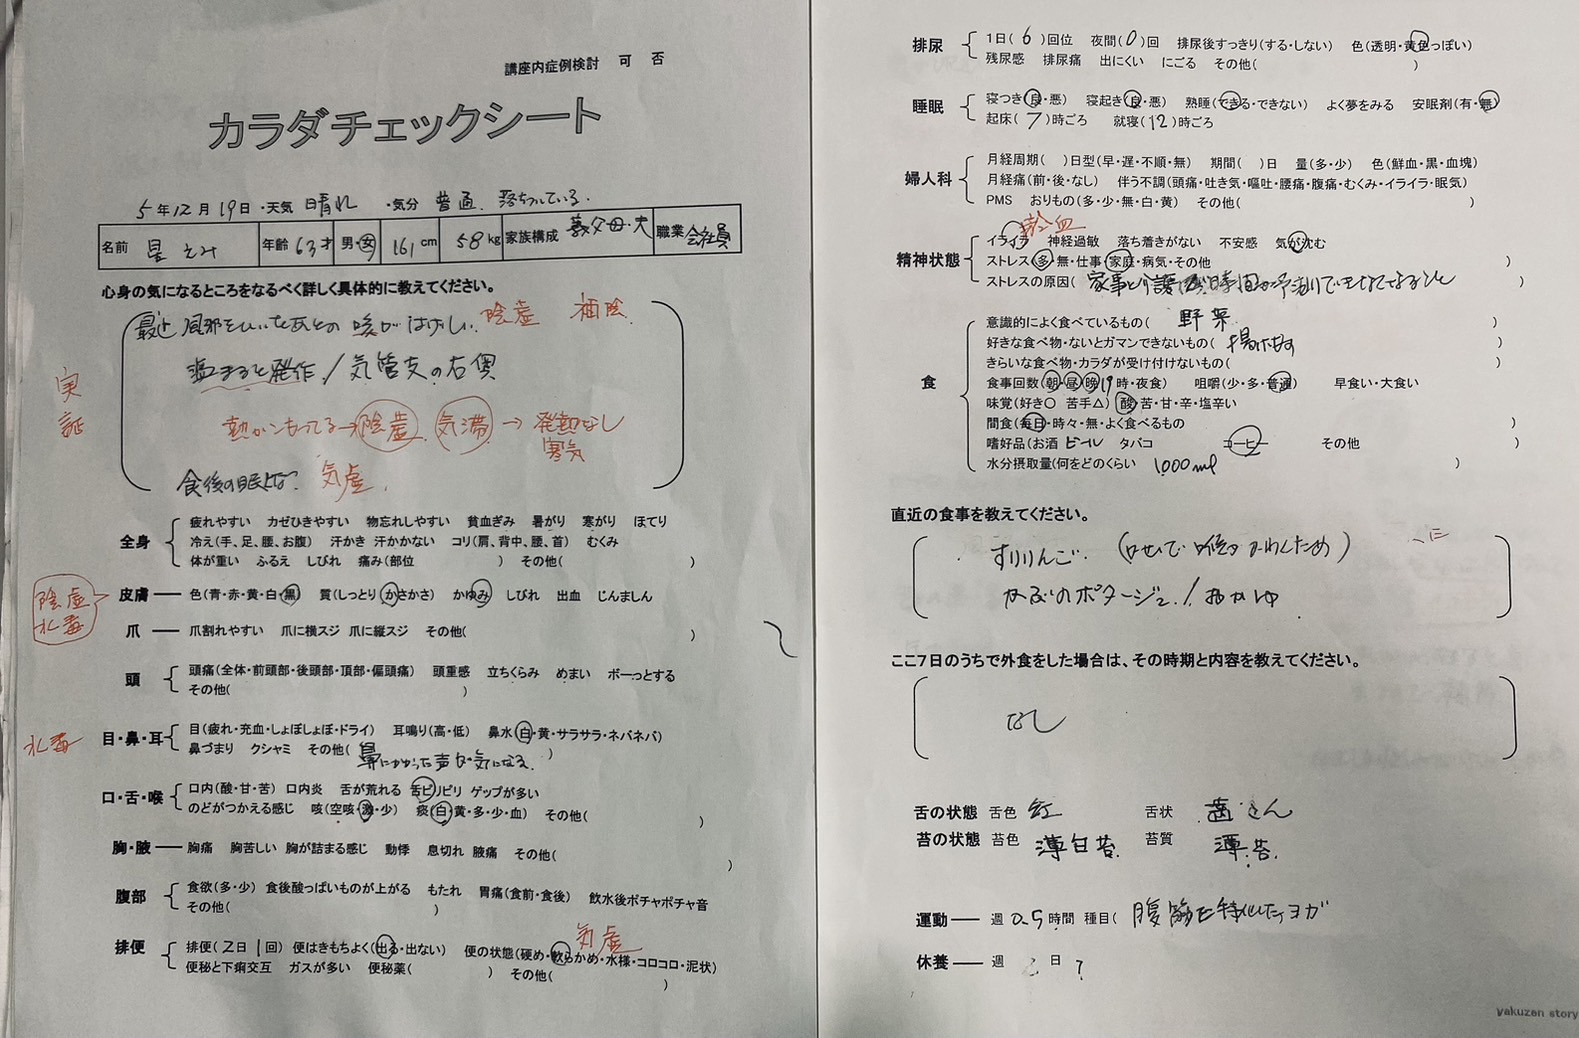 講座内症例検討 可 否
カラダチェックシート
5年12月19日 ・天気 晴れ ・気分 普通、落ちついている。
名前 星 えみ 年齢 63才 男・女 161cm 58kg 家族構成 義父母・夫 職業 会社員
心身の気になるところをなるべく詳しく具体的に教えてください。
最近 風邪をひいたあとの 咳がはげしい 陰虚 補陰
実証
温まると発作/気管支の右側
熱がこもってる→陰虚 気滞→発熱なし
寒気
食後の眠けは? 気虚
全身 疲れやすい カゼひきやすい 物忘れしやすい 貧血ぎみ 暑がり 寒がり ほてり
冷え(手、足、腰、お腹) 汗かき 汗かかない コリ(肩、背中、腰、首) むくみ
体が重い ふるえ しびれ 痛み(部位 ) その他( )
陰虚
水毒
皮膚 色(青・赤・黄・白・黒) 質(しっとり・かさかさ) かゆみ しびれ 出血 じんましん
爪 爪割れやすい 爪に横スジ 爪に縦スジ その他( )
頭 頭痛(全体・前頭部・後頭部・頂部・偏頭痛) 頭重感 立ちくらみ めまい ボーっとする
その他( )
水毒
目・鼻・耳 目(疲れ・充血・しょぼしょぼ・ドライ) 耳鳴り(高・低) 鼻水(白・黄・サラサラ・ネバネバ)
鼻づまり クシャミ その他( 鼻にかかった声が気になる。 )
口・舌・喉 口内(酸・甘・苦) 口内炎 舌が荒れる 舌ピリピリ ゲップが多い
のどがつかえる感じ 咳(空咳・多・少) 痰(白・黄・多・少・血) その他( )
胸・腋 胸痛 胸苦しい 胸が詰まる感じ 動悸 息切れ 腋痛 その他( )
腹部 食欲(多・少) 食後酸っぱいものが上がる もたれ 胃痛(食前・食後) 飲水後ポチャポチャ音
その他( )
気虚
排便 排便(2日1回) 便はきもちよく(出る・出ない) 便の状態(硬め・軟らかめ・水様・コロコロ・泥状)
便秘と下痢交互 ガスが多い 便秘薬( ) その他( )
排尿 1日(6)回位 夜間(0)回 排尿後すっきり(する・しない) 色(透明・黄色っぽい)
残尿感 排尿痛 出にくい にごる その他( )
睡眠 寝つき(良・悪) 寝起き(良・悪) 熟睡(できる・できない) よく夢をみる 安眠剤(有・無)
起床(7)時ごろ 就寝(12)時ごろ
婦人科 月経周期( )日型(早・遅・不順・無) 期間( )日 量(多・少) 色(鮮血・黒・血塊)
月経痛(前・後・なし) 伴う不調(頭痛・吐き気・嘔吐・腰痛・腹痛・むくみ・イライラ・眠気)
PMS おりもの(多・少・無・白・黄) その他( )
精神状態 イライラ 神経過敏 落ち着きがない 不安感 気が沈む
ストレス(多・無・仕事・家庭・病気・その他 )
ストレスの原因( 家事と介護 時間が )
食 意識的によく食べているもの( 野菜 )
好きな食べ物・ないとガマンできないもの( 揚げもの )
きらいな食べ物・カラダが受け付けないもの( )
食事回数(朝・昼・晩19時・夜食) 咀嚼(少・多・普通) 早食い・大食い
味覚(好き○ 苦手△)(酸・苦・甘・辛・塩辛い
間食(毎日・時々・無・よく食べるもの )
嗜好品(お酒 ビール タバコ コーヒー その他 )
水分摂取量(何をどのくらい 1000ml )
直近の食事を教えてください。
すりりんご (咳で喉がかわくため)
かぶのポタージュ/おかゆ
ここ7日のうちで外食をした場合は、その時期と内容を教えてください。
なし
舌の状態 舌色 紅 舌状 歯こん
苔の状態 苔色 薄白苔 苔質 薄苔
運動 週 0.5 時間 種目( 腹筋を特化したヨガ
休養 週 日 ?
yakuzen story